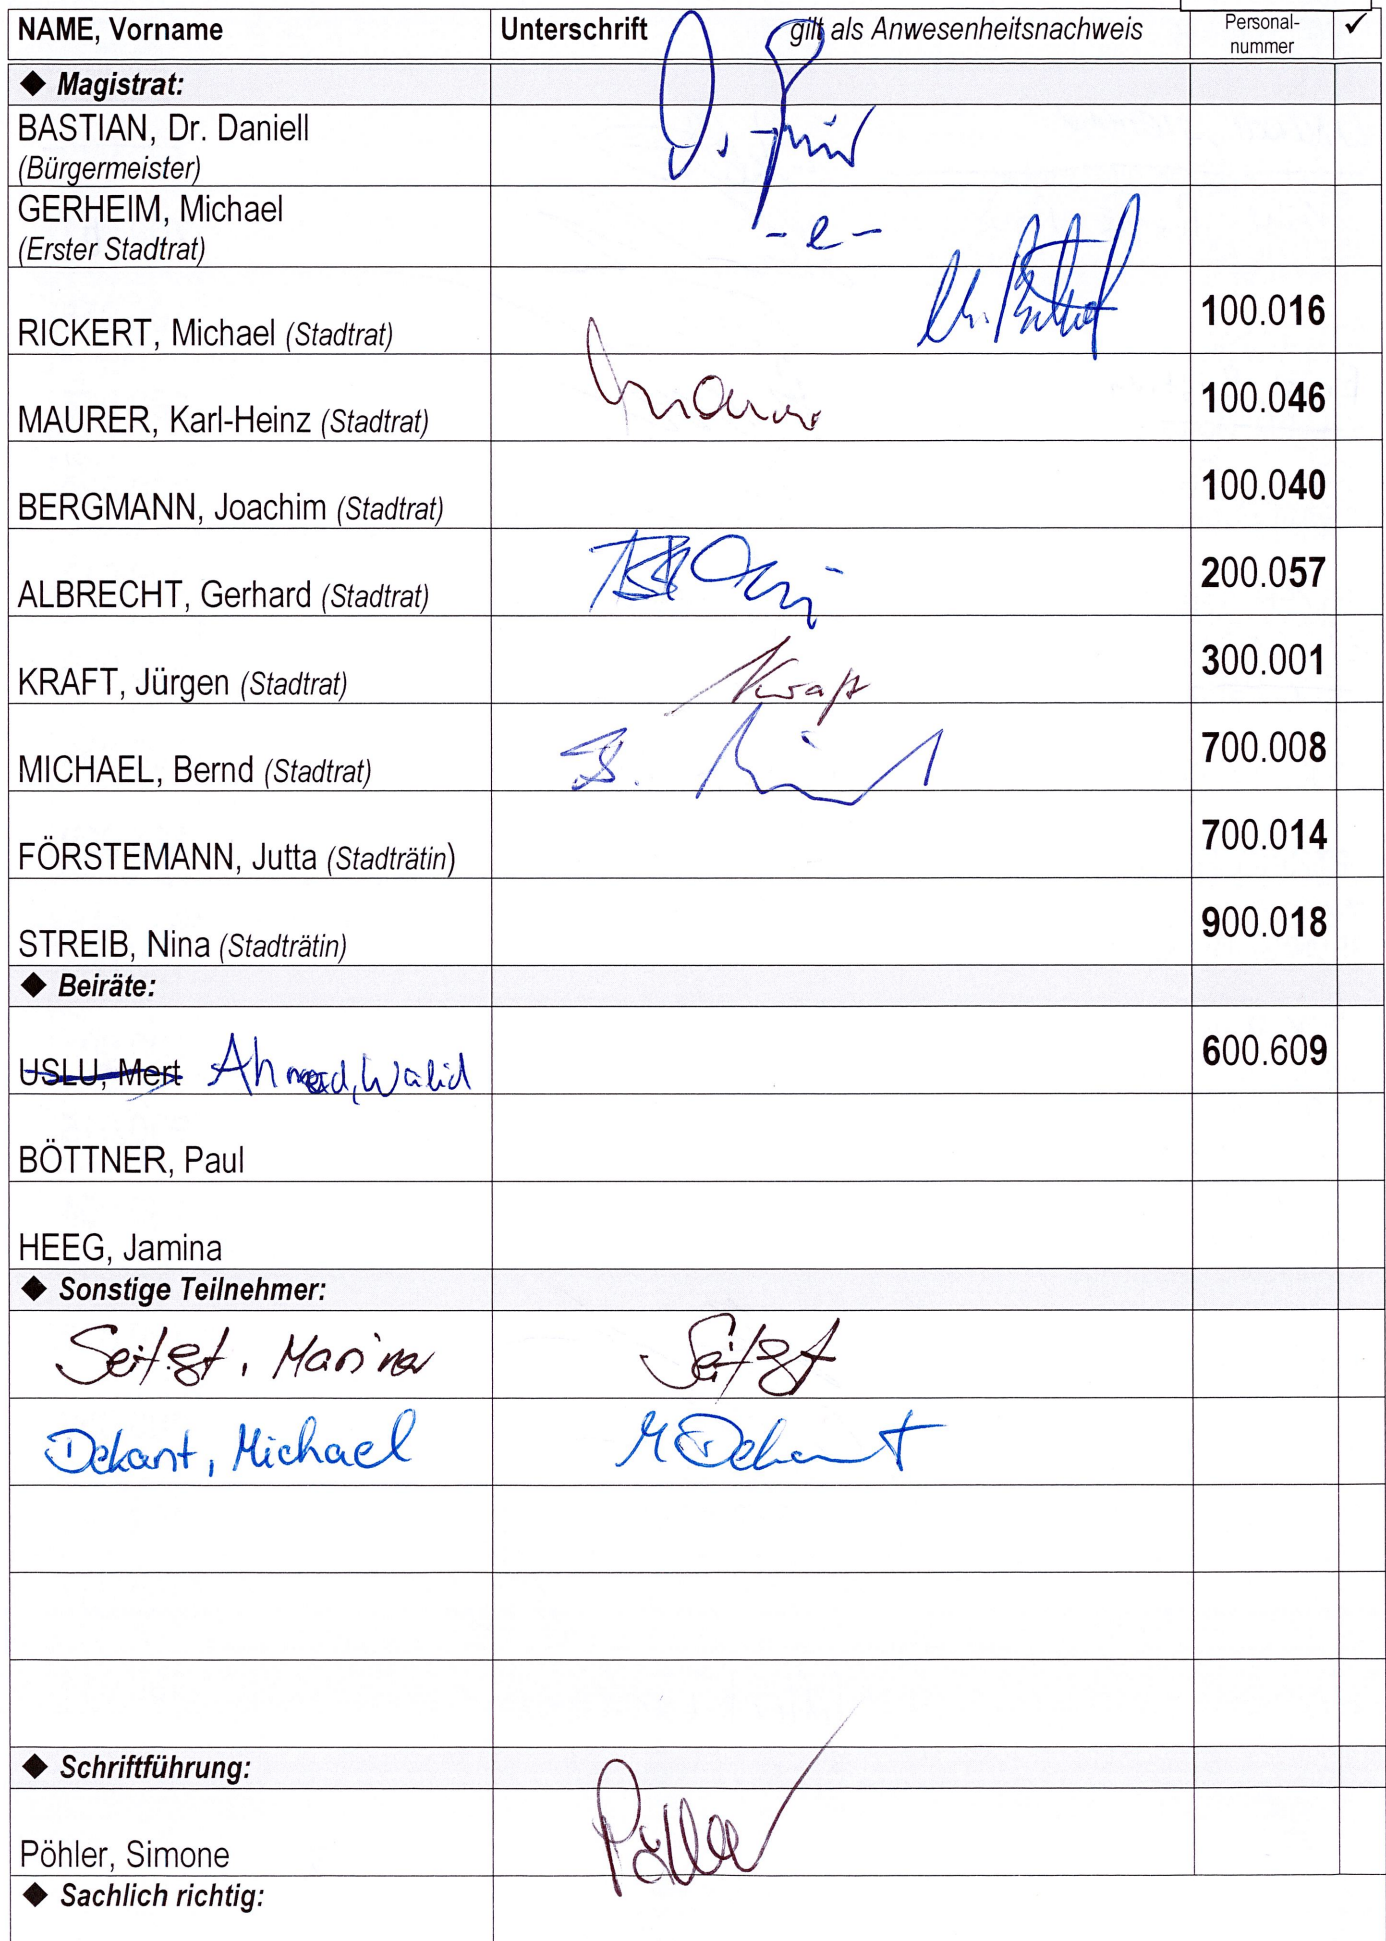 NAME, Vorname Unterschrift gilt als Anwesenheitsnachweis Personal-nummer ✓
◆ Magistrat:
BASTIAN, Dr. Daniell
(Bürgermeister)
GERHEIM, Michael
(Erster Stadtrat) - e -
RICKERT, Michael (Stadtrat) 100.016
MAURER, Karl-Heinz (Stadtrat) Maurer 100.046
BERGMANN, Joachim (Stadtrat) 100.040
ALBRECHT, Gerhard (Stadtrat) 200.057
KRAFT, Jürgen (Stadtrat) Kraft 300.001
MICHAEL, Bernd (Stadtrat) B. 700.008
FÖRSTEMANN, Jutta (Stadträtin) 700.014
STREIB, Nina (Stadträtin) 900.018
◆ Beiräte:
USLU, Mert Ahmed, Walid 600.609
BÖTTNER, Paul
HEEG, Jamina
◆ Sonstige Teilnehmer:
Dekant, Michael M Dekant
◆ Schriftführung:
Pöhler, Simone Pöhler
◆ Sachlich richtig: